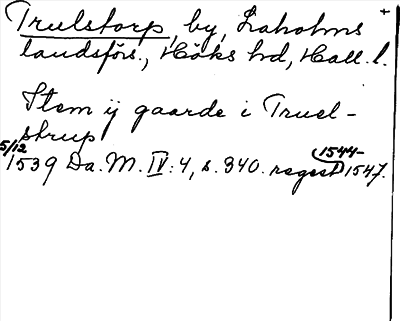 Trulstorp, by, Laholms
landsförs., Höks hd, Hall. l.
Item ij gaarde i Truel-
strup
5/12 1539 Da. M. IV: 4, s. 340. regest (1544-1547.